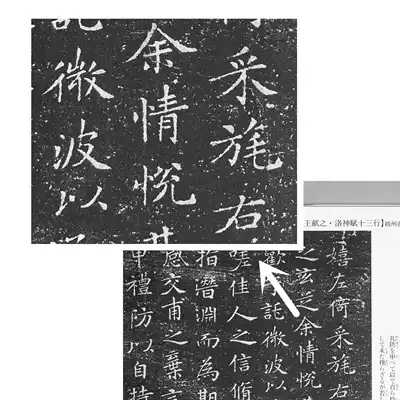 采旄右
余情悦
託微波以
王献之・洛神賦十三行】
嬉左倚采旄
之玄芝余情悦
歡託微波以
嗟佳人之信脩
指潛淵而為期
感交甫之棄言
申禮防以自持